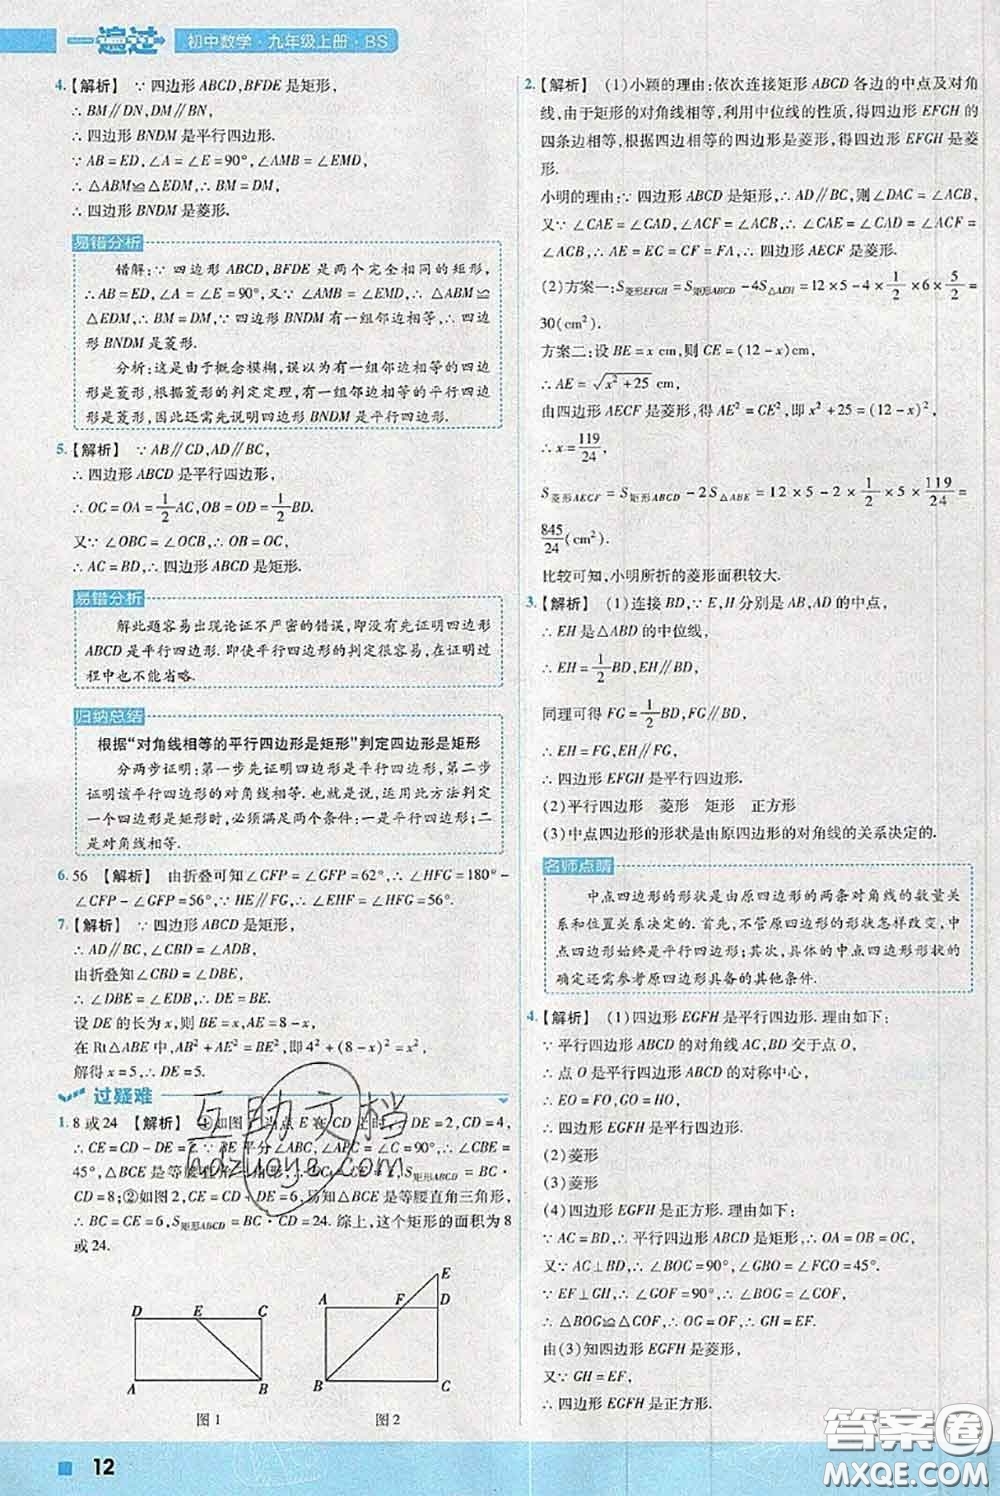 一遍过 初中数学·九年级上册·BS
4.【解析】 ∵四边形ABCD,BFDE是矩形,
∴BM∥DN,DM∥BN,
∴四边形BNDM是平行四边形.
∵AB=ED,∠A=∠E=90°,∠AMB=∠EMD,
∴△ABM≌△EDM,∴BM=DM,
∴四边形BNDM是菱形.
易错分析
错解:∵四边形ABCD,BFDE是两个完全相同的矩形,
∴AB=ED,∠A=∠E=90°,又∵∠AMB=∠EMD,∴△ABM≌
△EDM,∴BM=DM,∵四边形BNDM有一组邻边相等,∴四边
形BNDM是菱形.
分析:这是由于概念模糊,误以为有一组邻边相等的四边
形是菱形,根据菱形的判定定理,有一组邻边相等的平行四边
形是菱形,因此还需先说明四边形BNDM是平行四边形.
5.【解析】 ∵AB∥CD,AD∥BC,
∴四边形ABCD是平行四边形,
∴OC=OA=1/2AC,OB=OD=1/2BD.
又∵∠OBC=∠OCB,∴OB=OC,
∴AC=BD,∴四边形ABCD是矩形.
易错分析
解此题容易出现论证不严密的错误,即没有先证明四边形
ABCD是平行四边形.即使平行四边形的判定很容易,在证明过
程中也不能省略.
归纳总结
根据“对角线相等的平行四边形是矩形”判定四边形是矩形
分两步证明:第一步先证明四边形是平行四边形,第二步
证明该平行四边形的对角线相等.也就是说,运用此方法判定
一个四边形是矩形时,必须满足两个条件:一是平行四边形;二
是对角线相等.
6. 56 【解析】 由折叠可知∠CFP=∠GFP=62°,∴∠HFG=180°-
∠CFP-∠GFP=56°,∵HE∥FG,∴∠EHF=∠HFG=56°.
7.【解析】 ∵四边形ABCD是矩形,
∴AD∥BC,∴∠CBD=∠ADB,
由折叠知∠CBD=∠DBE,
∴∠DBE=∠EDB,∴DE=BE.
设DE的长为x,则BE=x,AE=8-x,
在Rt△ABE中,AB²+AE²=BE²,即4²+(8-x)²=x²,
解得x=5,∴DE=5.
过疑难
1. 8或24 【解析】 ①如图1,当点E在CD上时,∵DE=2,CD=4,
∴CE=CD-DE=2.∵BE平分∠ABC,∠ABC=∠C=90°,∴∠CBE=
45°,∴△BCE是等腰直角三角形,∴BC=CE=2,S矩形ABCD=BC·
CD=8;②如图2,CE=CD+DE=6,易知△BCE是等腰直角三角形,
∴BC=CE=6,S矩形ABCD=BC·CD=24.综上,这个矩形的面积为8
或24.
D E C
A B
图1
E
A F D
B C
图2
2.【解析】 (1)小颖的理由:依次连接矩形ABCD各边的中点及对角
线,由于矩形的对角线相等,利用中位线的性质,得四边形EFGH的
四条边相等,根据四边相等的四边形是菱形,得四边形EFGH是菱
形.
小明的理由:∵四边形ABCD是矩形,∴AD∥BC,则∠DAC=∠ACB,
又∵∠CAE=∠CAD,∠ACF=∠ACB,∴∠CAE=∠CAD=∠ACF=
∠ACB,∴AE=EC=CF=FA,∴四边形AECF是菱形.
(2)方案一:S菱形EFGH=S矩形ABCD-4S△AEH=12×5-4×1/2×6×5/2=
30(cm²).
方案二:设BE=x cm,则CE=(12-x)cm,
∴AE=√(x²+25) cm,
由四边形AECF是菱形,得AE²=CE²,即x²+25=(12-x)²,
∴x=119/24,
S菱形AECF=S矩形ABCD-2S△ABE=12×5-2×1/2×5×119/24=
845/24(cm²).
比较可知,小明所折的菱形面积较大.
3.【解析】 (1)连接BD,∵E,H分别是AB,AD的中点,
∴EH是△ABD的中位线,
∴EH=1/2BD,EH∥BD,
同理可得FG=1/2BD,FG∥BD,
∴EH=FG,EH∥FG,
∴四边形EFGH是平行四边形.
(2)平行四边形 菱形 矩形 正方形
(3)中点四边形的形状是由原四边形的对角线的关系决定的.
名师点睛
中点四边形的形状是由原四边形的两条对角线的数量关
系和位置关系决定的.首先,不管原四边形的形状怎样改变,中
点四边形始终是平行四边形;其次,具体的中点四边形的形状的
确定还需参考原四边形具备的其他条件.
4.【解析】 (1)四边形EGFH是平行四边形.理由如下:
∵平行四边形ABCD的对角线AC,BD交于点O,
∴点O是平行四边形ABCD的对称中心,
∴EO=FO,GO=HO,
∴四边形EGFH是平行四边形.
(2)菱形
(3)菱形
(4)四边形EGFH是正方形.理由如下:
∵AC=BD,∴平行四边形ABCD是矩形,∴OA=OB=OC,
又∵AC⊥BD,∴∠BOC=90°,∠GBO=∠FCO=45°.
∵EF⊥GH,∴∠GOF=90°,∴∠BOG=∠COF,
∴△BOG≌△COF,∴OG=OF,∴GH=EF.
由(3)知四边形EGFH是菱形,
又∵GH=EF,
∴四边形EGFH是正方形.
互助文档
hdzuoye.com
答案圈
MXQE.COM
12